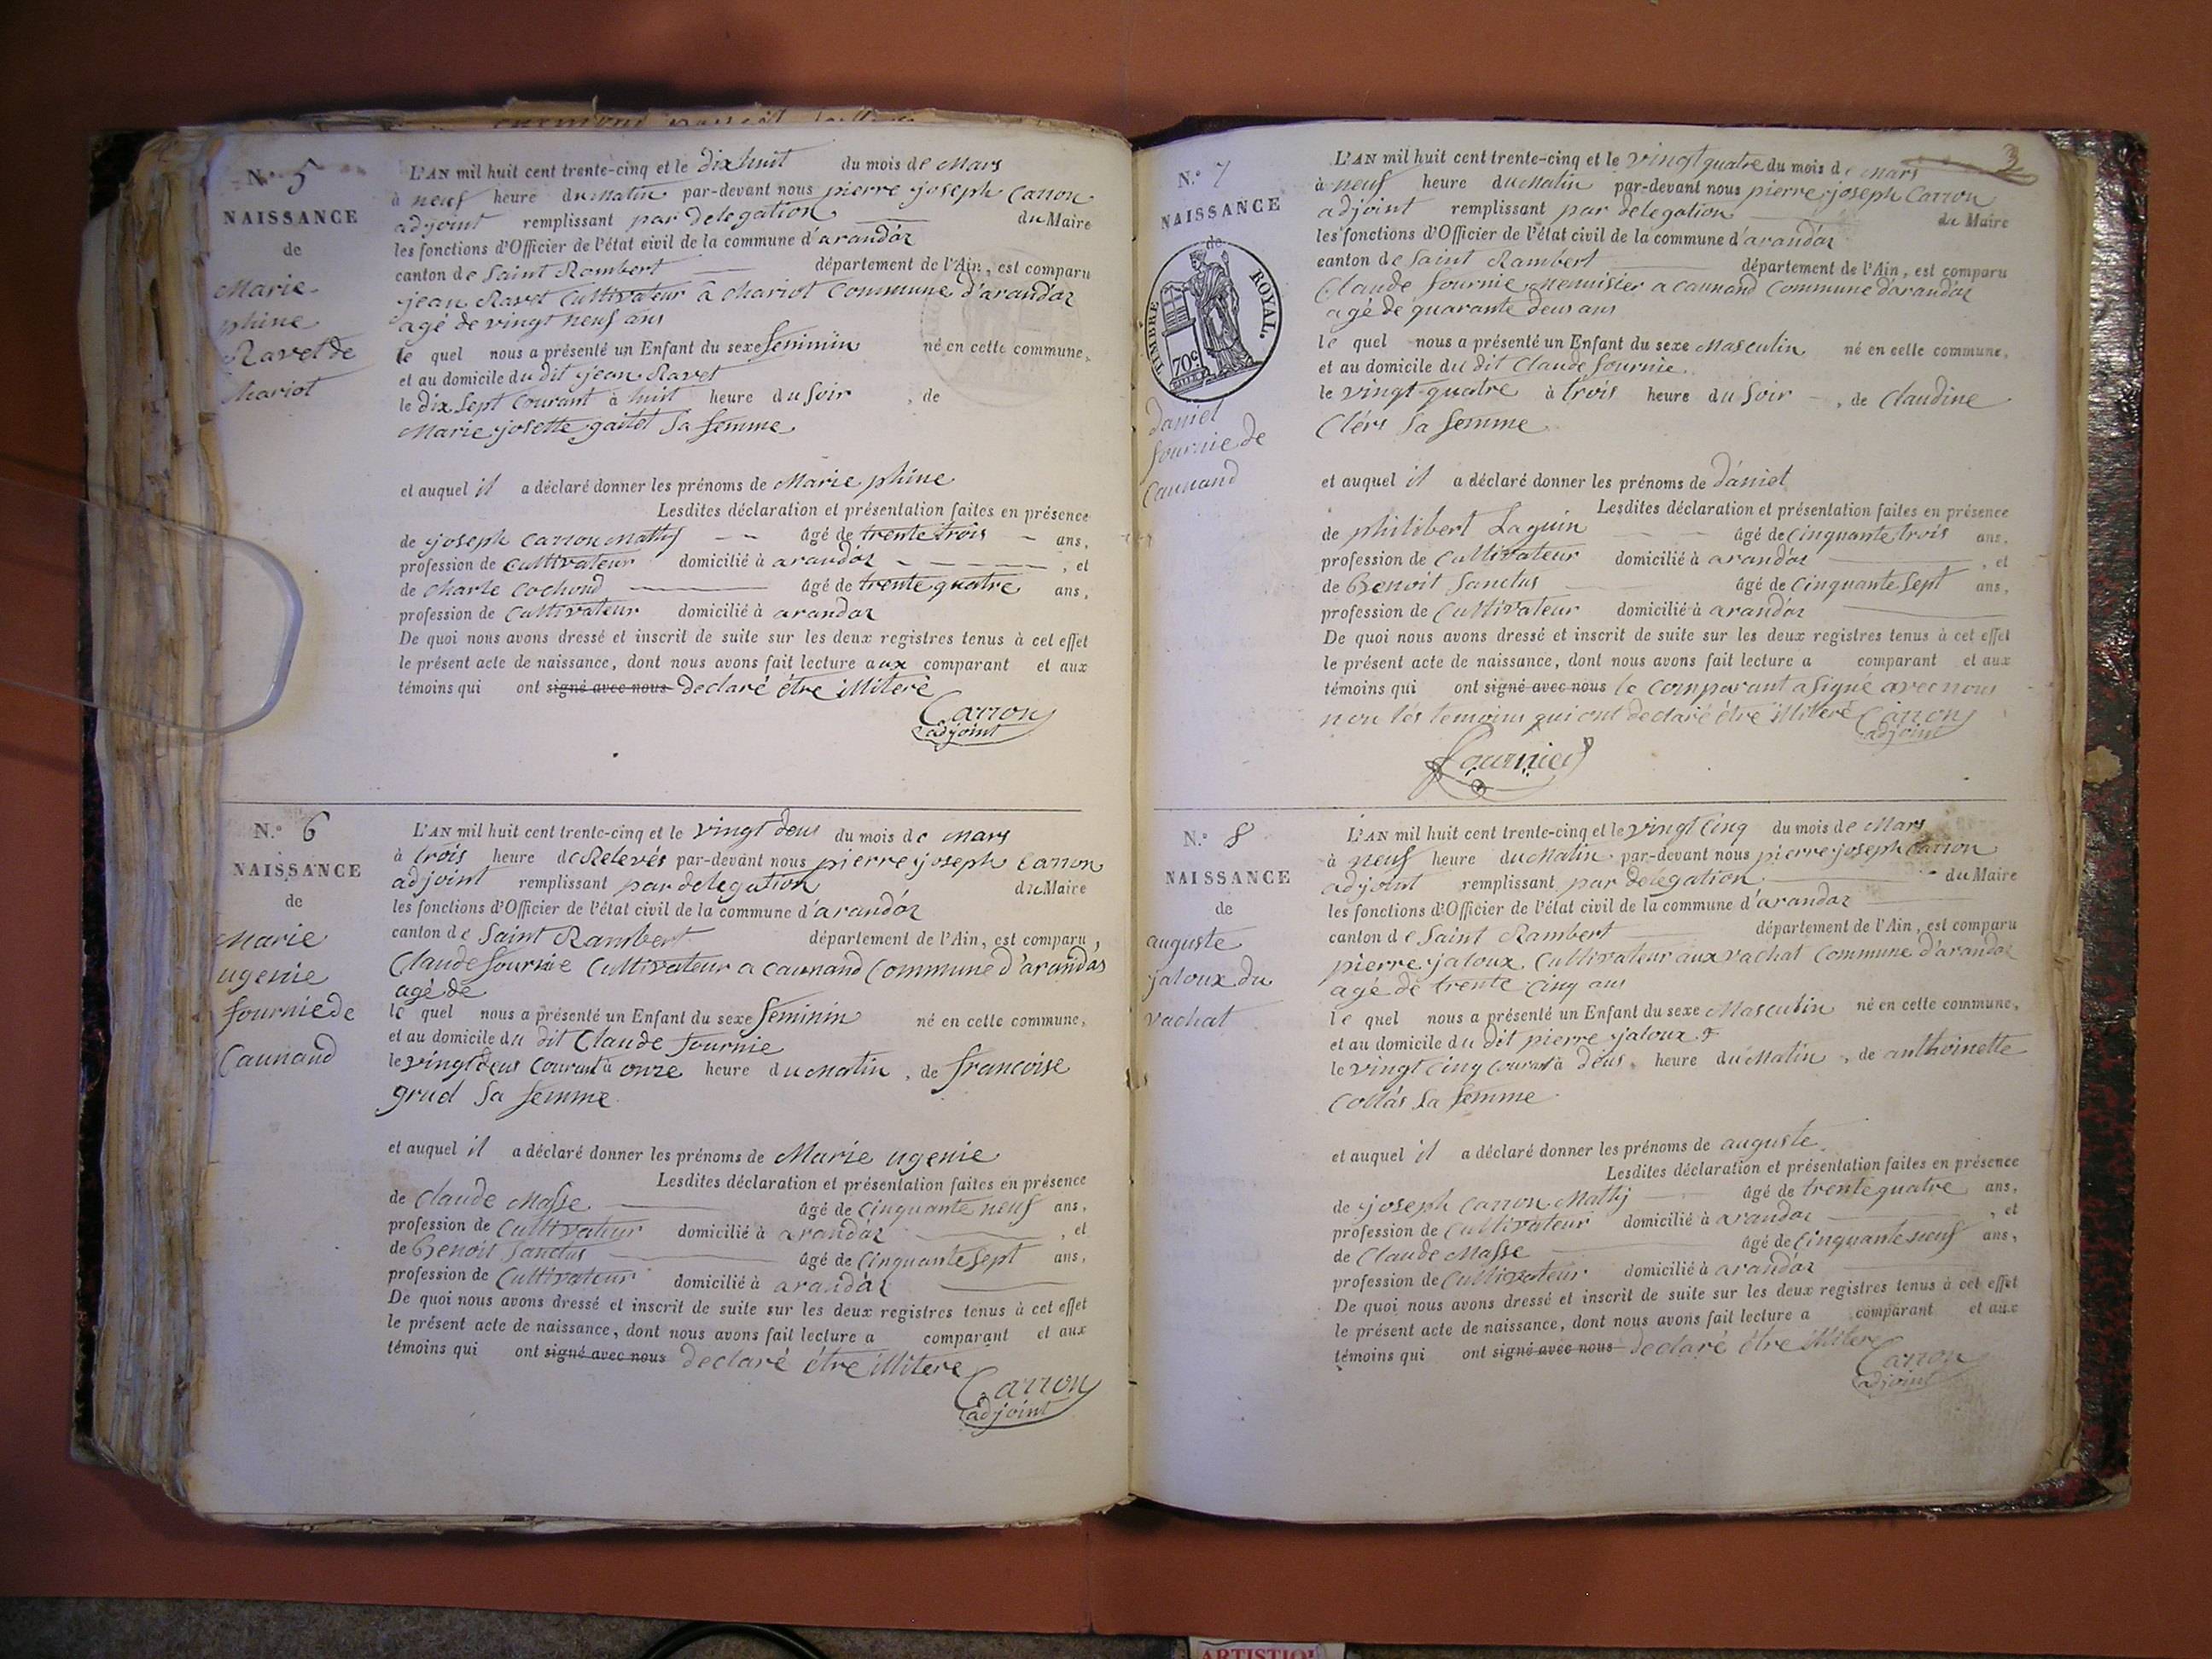 N.° 5
NAISSANCE
de
Marie
phine
Ravet de
chariot
L'AN mil huit cent trente-cinq et le dix huit du mois de Mars
à neuf heure du Matin par-devant nous pierre joseph Carron
adjoint remplissant par delegation du Maire
les fonctions d'Officier de l'état civil de la commune d'arandaz
canton de Saint Rambert département de l'Ain, est comparu
jean Ravet Cultivateur a chariot Commune d'arandaz
agé de vingt neuf ans
le quel nous a présenté un Enfant du sexe feminin né en cette commune,
et au domicile du dit jean Ravet
le dix Sept Courant à huit heure du Soir, de
Marie josette gaitet Sa femme
et auquel il a déclaré donner les prénoms de Marie phine
Lesdites déclaration et présentation faites en présence
de joseph Carron Mathy âgé de trente trois ans,
profession de Cultivateur domicilié à arandaz, et
de charle Cochond âgé de trente quatre ans,
profession de Cultivateur domicilié à arandaz
De quoi nous avons dressé et inscrit de suite sur les deux registres tenus à cet effet
le présent acte de naissance, dont nous avons fait lecture aux comparant et aux
témoins qui ont signé avec nous declaré être illiteré
Carron
adjoint
N.° 6
NAISSANCE
de
Marie
ugenie
fournie de
Caunand
L'AN mil huit cent trente-cinq et le vingt deus du mois de Mars
à trois heure de Relevés par-devant nous pierre joseph Carron
adjoint remplissant par delegation du Maire
les fonctions d'Officier de l'état civil de la commune d'arandaz
canton de Saint Rambert département de l'Ain, est comparu,
Claude fournie Cultivateur a caunand Commune d'arandas
agé de
le quel nous a présenté un Enfant du sexe feminin né en cette commune,
et au domicile du dit Claude fournie
le vingt deus Courant à onze heure du Matin, de francoise
grud Sa femme
et auquel il a déclaré donner les prénoms de Marie ugenie
Lesdites déclaration et présentation faites en présence
de Claude Masse âgé de Cinquante neuf ans,
profession de Cultivateur domicilié à arandaz, et
de Benoit Sanctus âgé de Cinquante Sept ans,
profession de Cultivateur domicilié à arandaz
De quoi nous avons dressé et inscrit de suite sur les deux registres tenus à cet effet
le présent acte de naissance, dont nous avons fait lecture a comparant et aux
témoins qui ont signé avec nous declaré être illiteré
Carron
adjoint
3
N.° 7
NAISSANCE
de
TIMBRE ROYAL.
70c
daniel
fournie de
Caunand
L'AN mil huit cent trente-cinq et le vingt quatre du mois de Mars
à neuf heure du Matin par-devant nous pierre joseph Carron
adjoint remplissant par delegation du Maire
les fonctions d'Officier de l'état civil de la commune d'arandaz
canton de Saint Rambert département de l'Ain, est comparu
Claude fournie Menuisier a caunand Commune d'arandaz
agé de quarante deus ans
le quel nous a présenté un Enfant du sexe Masculin né en cette commune,
et au domicile du dit Claude fournie
le vingt quatre à trois heure du Soir, de Claudine
Clérs Sa femme
et auquel il a déclaré donner les prénoms de daniel
Lesdites déclaration et présentation faites en présence
de philibert Laguin âgé de Cinquante trois ans,
profession de Cultivateur domicilié à arandaz, et
de Benoit Sanctus âgé de Cinquante Sept ans,
profession de Cultivateur domicilié à arandaz
De quoi nous avons dressé et inscrit de suite sur les deux registres tenus à cet effet
le présent acte de naissance, dont nous avons fait lecture a comparant et aux
témoins qui ont signé avec nous le comparant a Signé avec nous
non les temoins qui ont declaré être illiteré Carron
adjoint
fournier
N.° 8
NAISSANCE
de
auguste
jaloux du
vachat
L'AN mil huit cent trente-cinq et le vingt Cinq du mois de Mars
à neuf heure du Matin par-devant nous pierre joseph Carron
adjoint remplissant par delegation du Maire
les fonctions d'Officier de l'état civil de la commune d'arandaz
canton de Saint Rambert département de l'Ain, est comparu
pierre jaloux Cultivateur aux vachat Commune d'arandaz
agé de trente Cinq ans
le quel nous a présenté un Enfant du sexe Masculin né en cette commune,
et au domicile du dit pierre jaloux
le vingt Cinq Courant à deus heure du Matin, de anthoinette
Collas Sa femme
et auquel il a déclaré donner les prénoms de auguste
Lesdites déclaration et présentation faites en présence
de joseph Carron Mathy âgé de trente quatre ans,
profession de Cultivateur domicilié à arandaz, et
de Claude Masse âgé de Cinquante neuf ans,
profession de Cultivateur domicilié à arandaz
De quoi nous avons dressé et inscrit de suite sur les deux registres tenus à cet effet
le présent acte de naissance, dont nous avons fait lecture a comparant et aux
témoins qui ont signé avec nous declaré être illiteré
Carron
adjoint